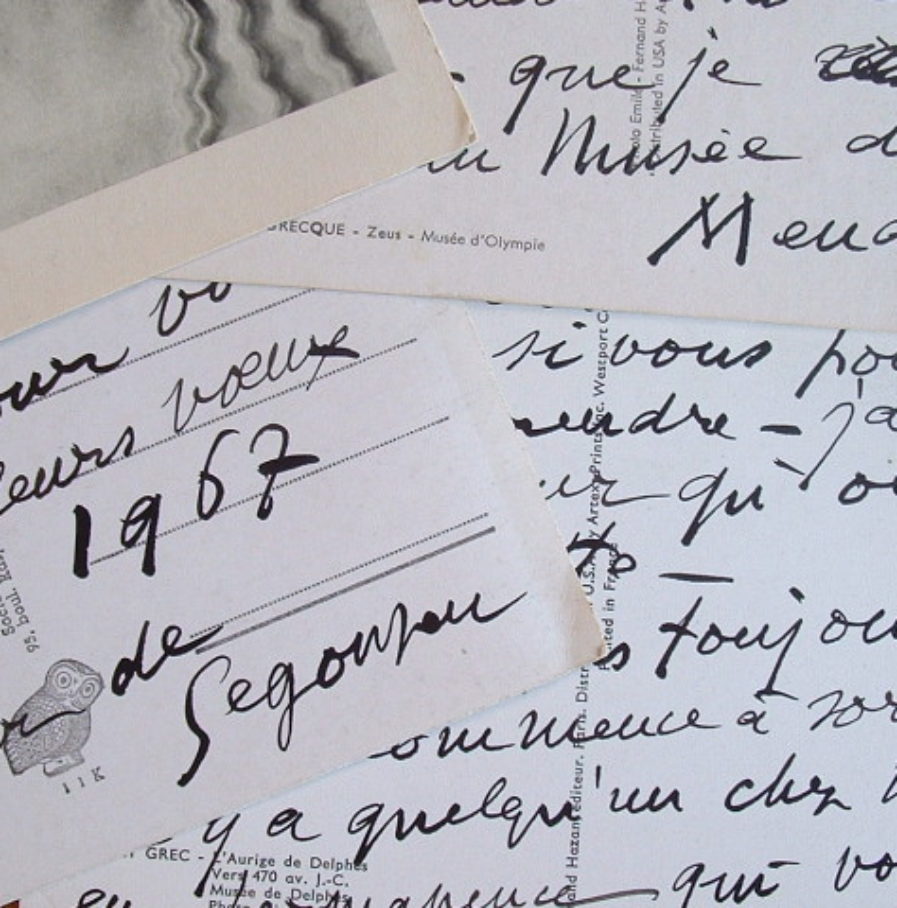 que je
Musée d
Mend
Photo Emile - Fernand H
Distributed in USA by A
GRECQUE - Zeus - Musée d'Olympie
our vo
leurs vœux
1967
de
Segonzac
95, boul. Ras
11K
si vous pou
rendre - j'a
qu'
toujou
commence à sor
y a quelqu'un chez
qui vo
and Hazan éditeur. Paris. Distr U.S.A. by Artex Prints Inc. Westport C
Printed in France
GREC - L'Aurige de Delphes
Vers 470 av. J.-C.
Musée de Delphes